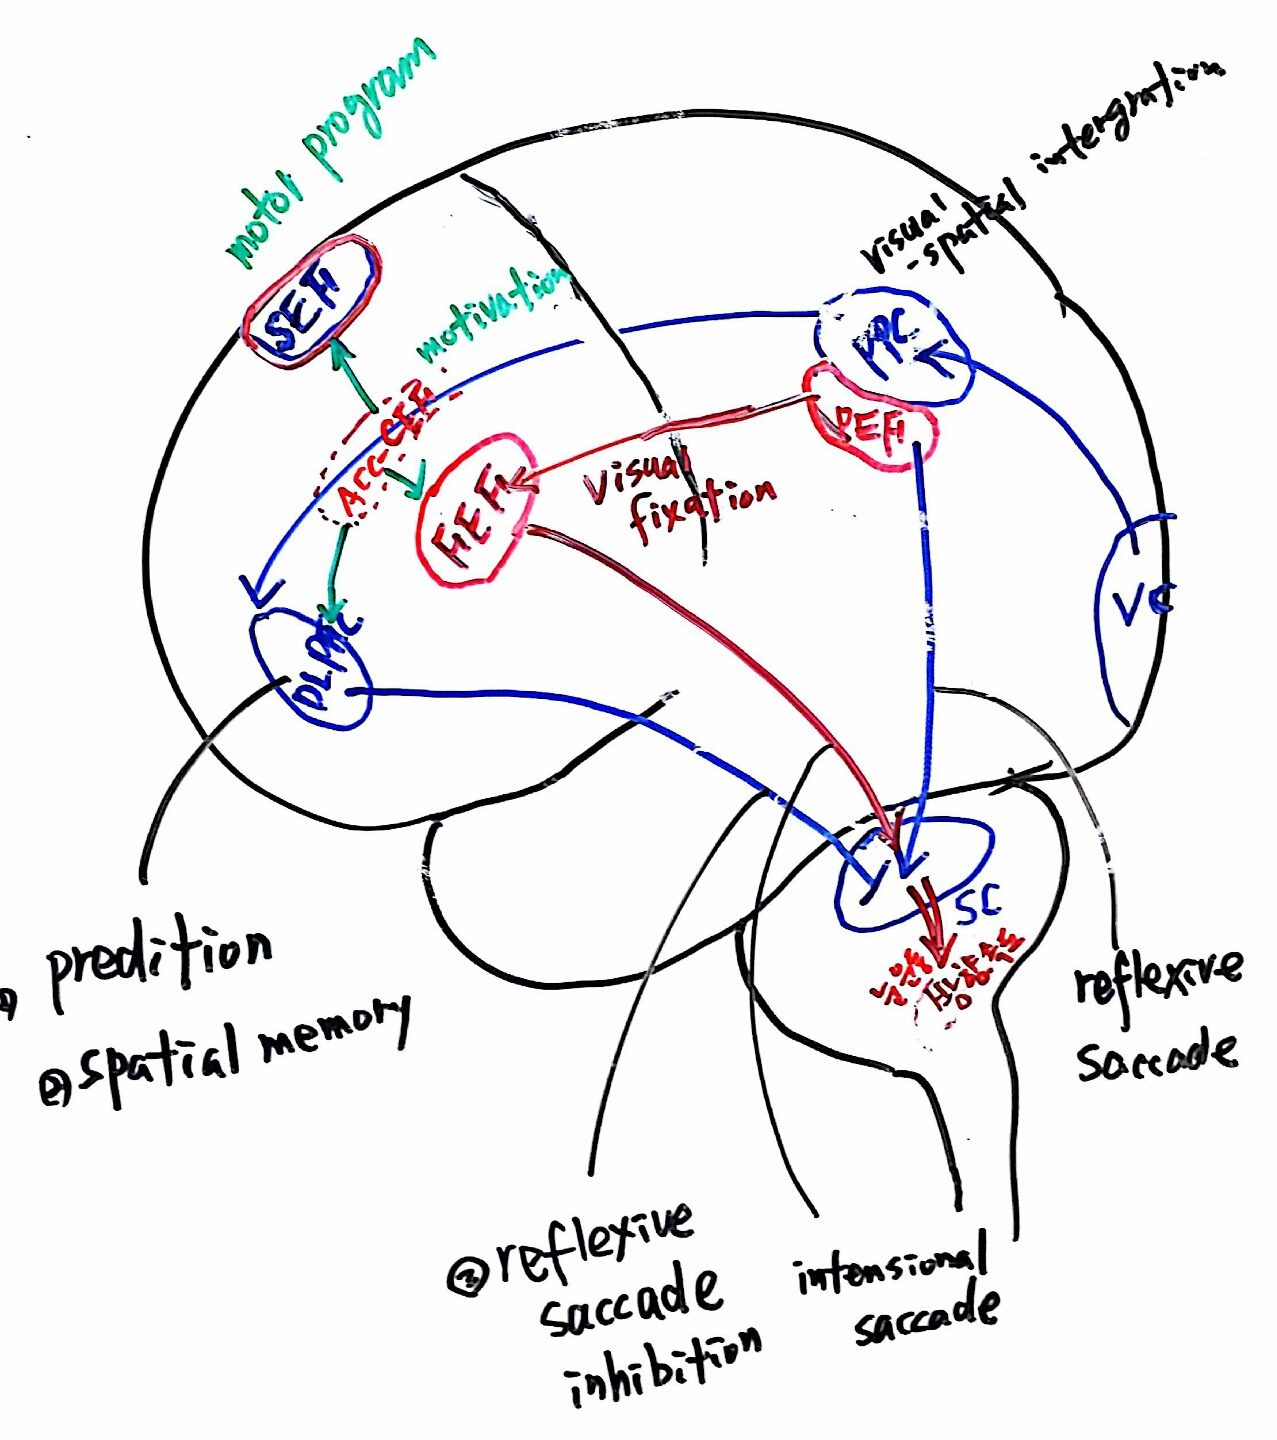 motor program
visual
-spatial intergration
SEF
motivation
PPC
ACC-CEF
PEF
FEF
visual
fixation
VC
DLPFC
SC
predition
② spatial memory
reflexive
saccade
③ reflexive
saccade
inhibition
intensional
saccade